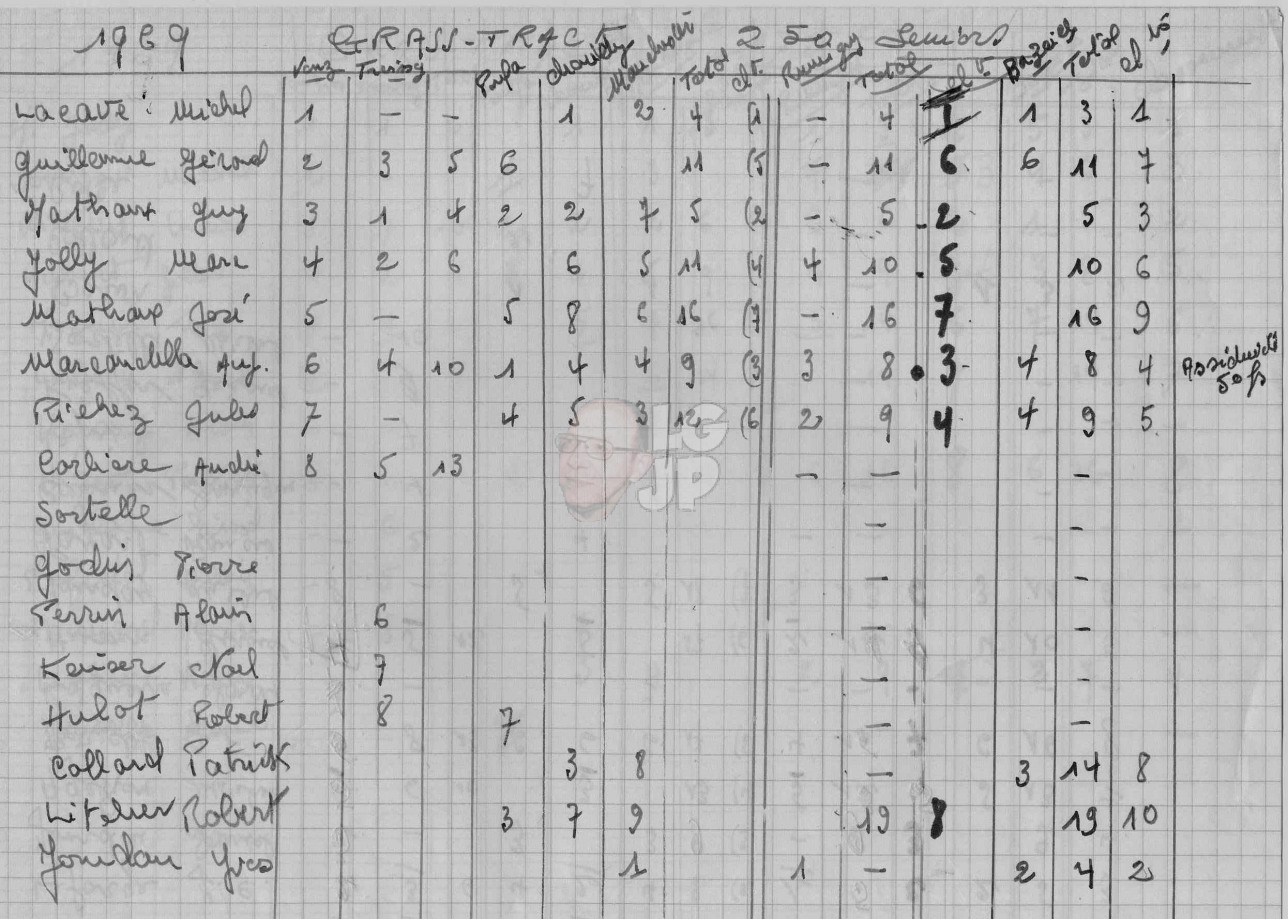 1969 GRASS-TRACK 250 Seniors
Vanz Treizy Chouilly Total Clt. Rumigny Total Clt. Bazeilles Total Clt
Lacave Michel 1 — — 1 2 4 (1 — 4 1 1 3 1
Guillemme Gérard 2 3 5 6 11 (5 — 11 6 6 11 7
Mathaux Guy 3 1 4 2 2 7 5 (2 — 5 2 5 3
Jolly Marc 4 2 6 6 5 11 (4 4 10 5 10 6
Mathaux José 5 — 5 8 6 16 (7 — 16 7 16 9
Marcandella Ang. 6 4 10 1 4 4 9 (3 3 8 3 4 8 4 Assiduité
50 f
Richez Jules 7 — 4 5 3 12 (6 2 9 4 4 9 5
Corbiere André 8 5 13 — — —
Sortelle — —
Godin Pierre — —
Perrin Alain 6 —
Keiser Noel 7 — —
Hulot Robert 8 7 — —
Collard Patrick 3 8 — 3 14 8
Litelier Robert 3 7 9 19 8 19 10
Jourdan Yves 1 1 — 2 4 2
JG
JP